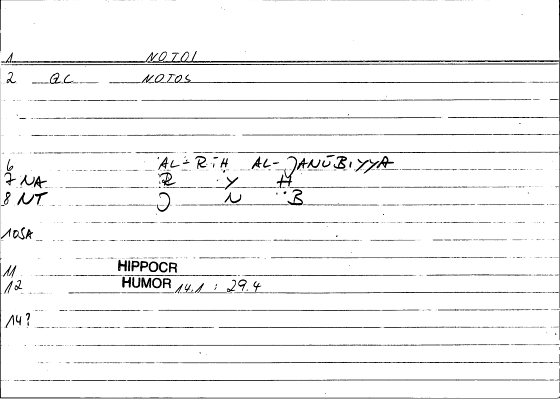 1 NOTOI
2 QC NOTOS
6 AL-RĪḤ AL-ǦANŪBIYYA
7 NA R Y Ḥ
8 NT Ǧ N B
10SA
11 HIPPOCR
12 HUMOR 14.1 : 29.4
14?